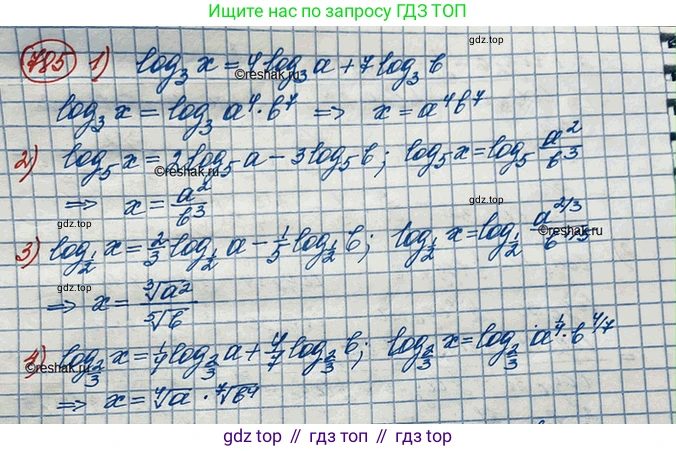 Ищите нас по запросу ГДЗ ТОП
785 1) log₃ x = 4 log₃ a + 7 log₃ b
©reshak.ru
gdz.top
log₃ x = log₃ a⁴ · b⁷ ⇒ x = a⁴b⁷
2) log₅ x = 2 log₅ a − 3 log₅ b; log₅ x = log₅ a²/b³
©reshak.ru
⇒ x = a²/b³
gdz.top
gdz.top
3) log_{1/2} x = 2/3 log_{1/2} a − 1/5 log_{1/2} b; log_{1/2} x = log_{1/2} a^{2/3}/b^{1/5}
©reshak.ru
⇒ x = ∛a²/⁵√b
4) log_{2/3} x = 1/4 log_{2/3} a + 4/7 log_{2/3} b; log_{2/3} x = log_{2/3} a^{1/4} · b^{4/7}
gdz.top
©reshak.ru
⇒ x = ⁴√a · ⁷√b⁴
gdz.top
©reshak.ru
gdz.top // гдз топ // gdz.top